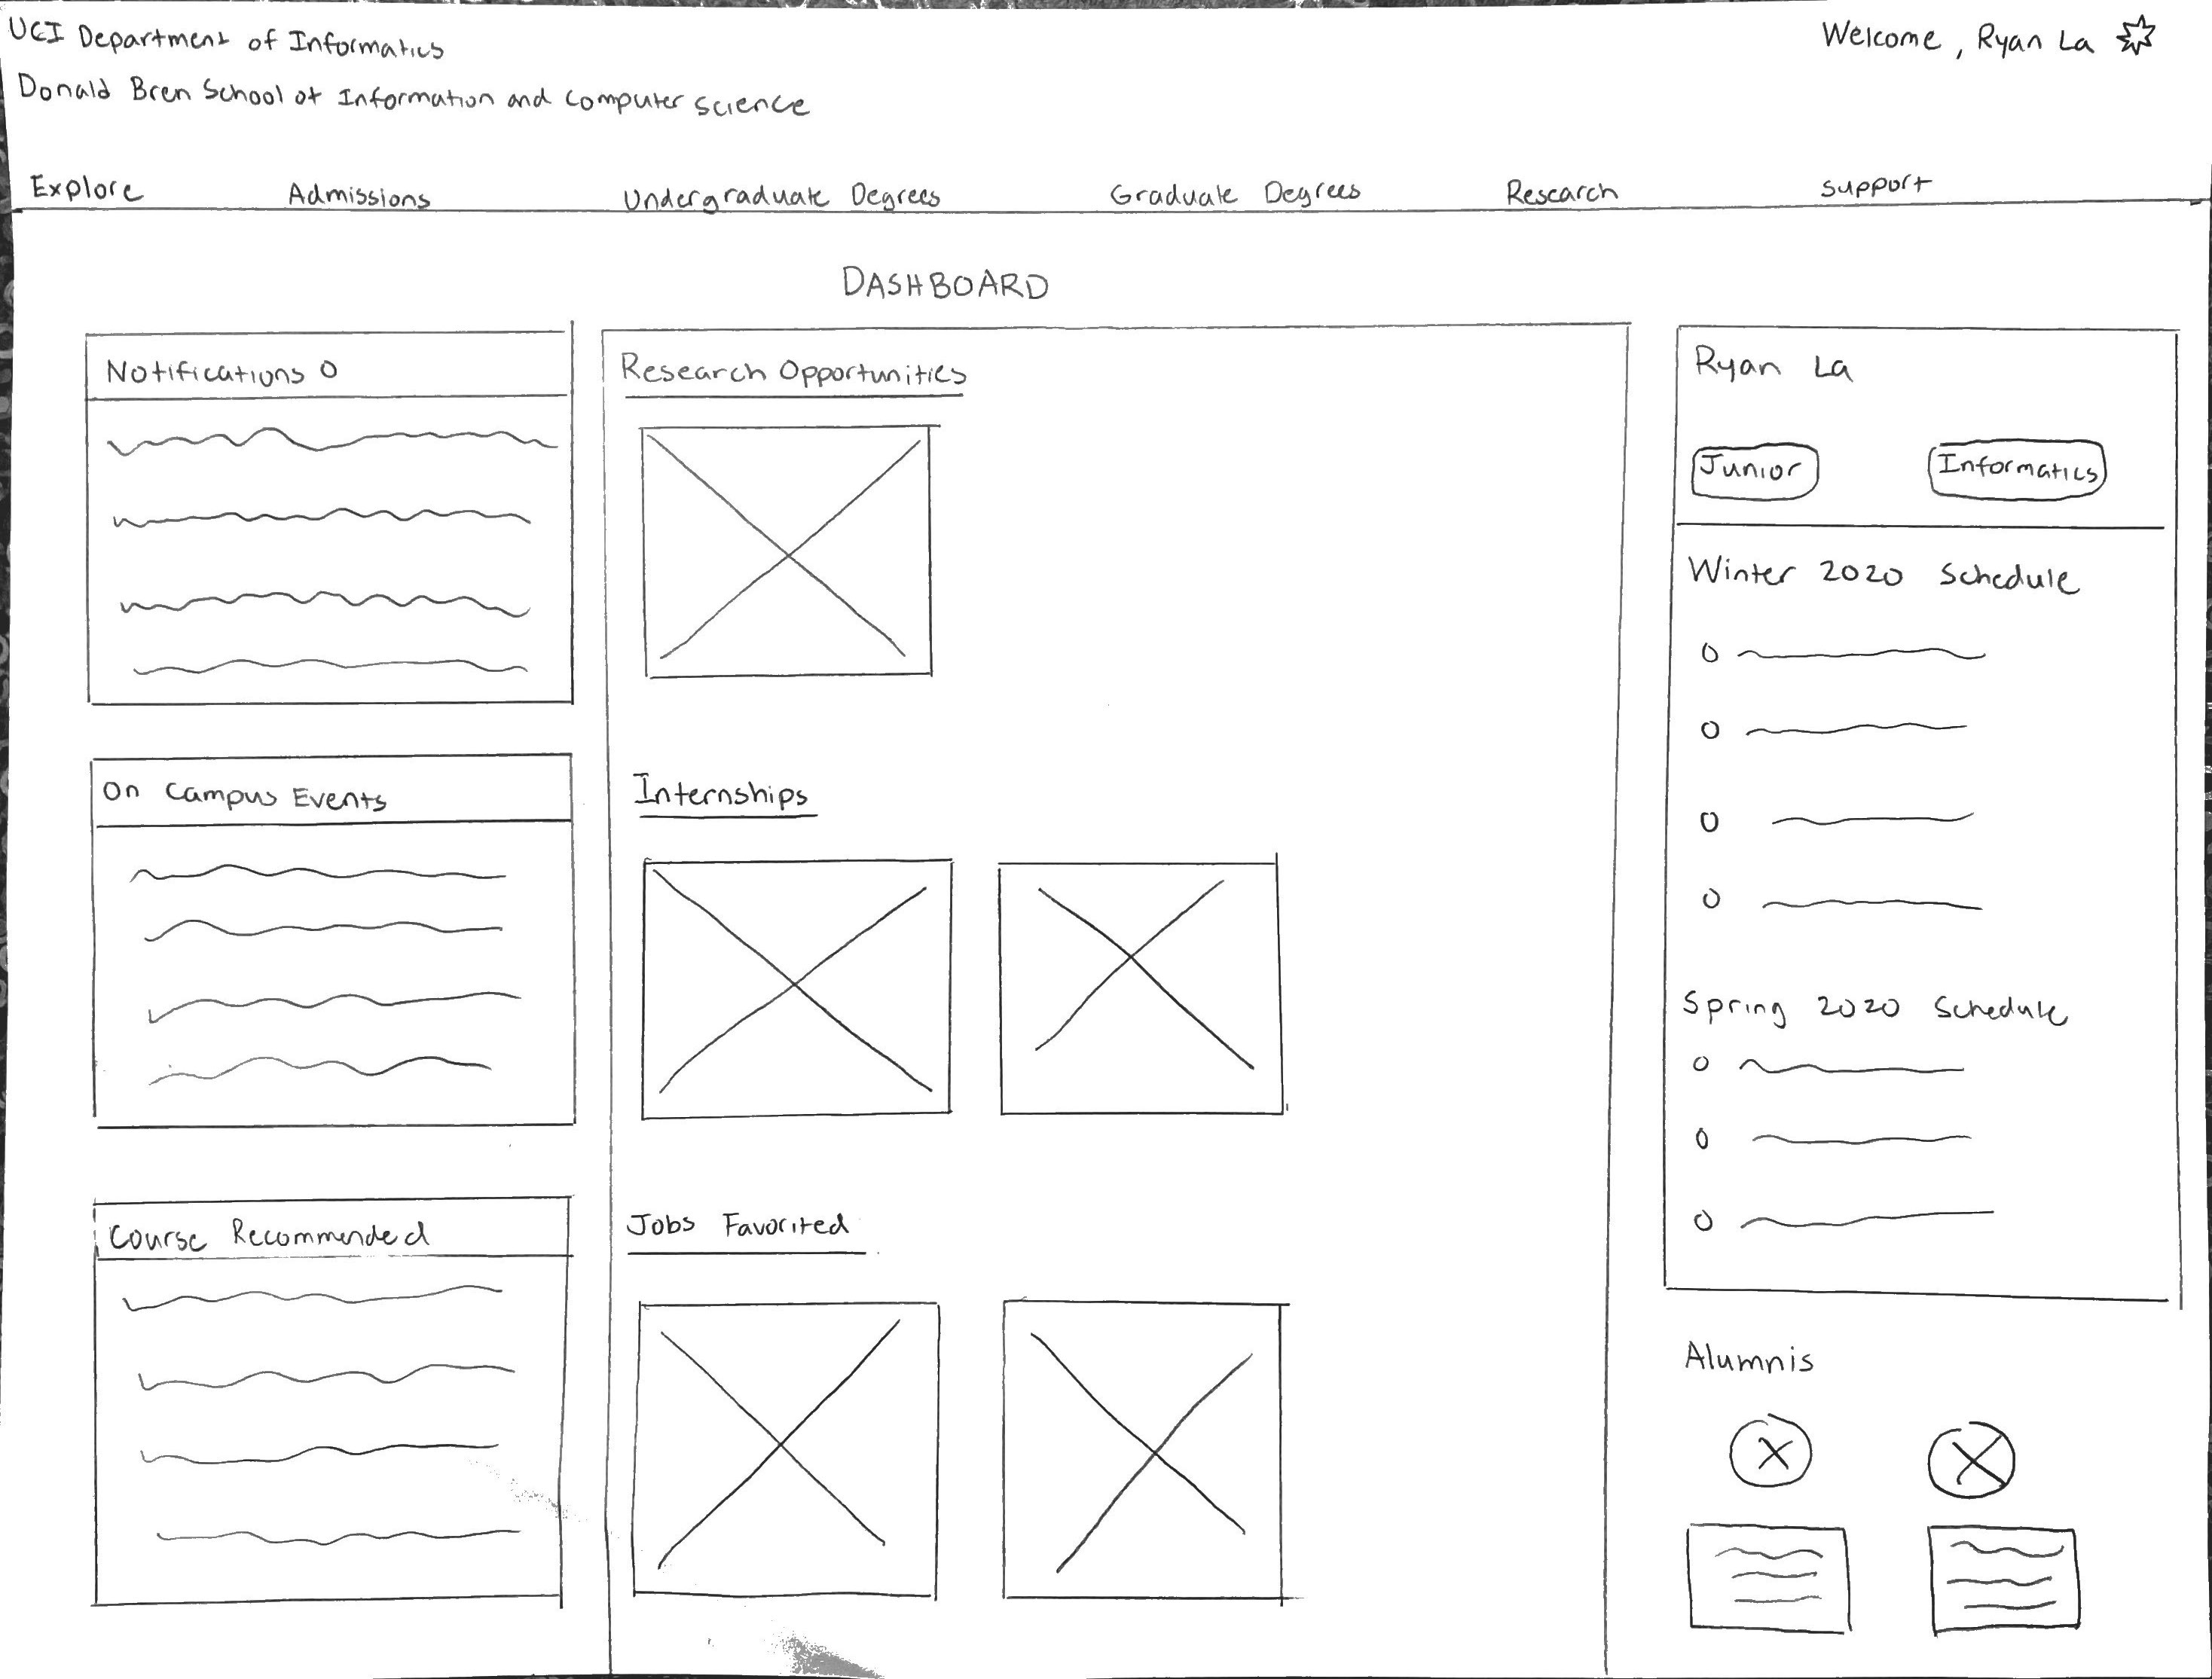 UCI Department of Informatics
Welcome, Ryan La
Donald Bren School of Information and Computer Science
Explore Admissions Undergraduate Degrees Graduate Degrees Research Support
DASHBOARD
Notifications O
On Campus Events
Course Recommended
Research Opportunities
Internships
Jobs Favorited
Ryan La
Junior Informatics
Winter 2020 Schedule
Spring 2020 Schedule
Alumnis